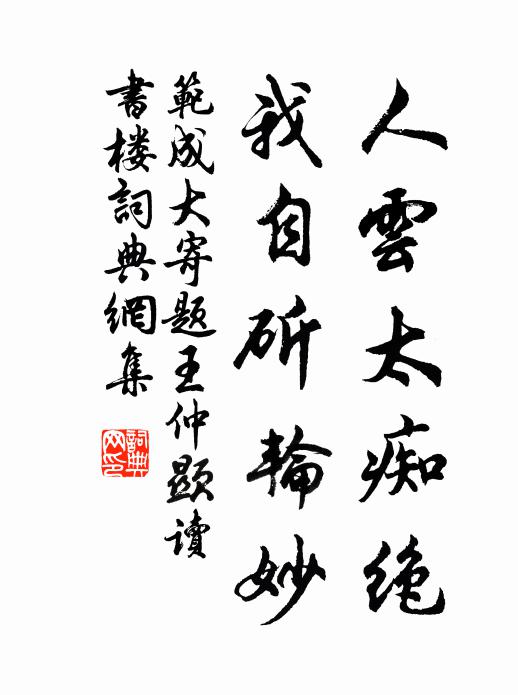 人雲太痴绝
我自斫輪妙
範成大寄题王仲顯讀
書楼詞典網集
詞典网印